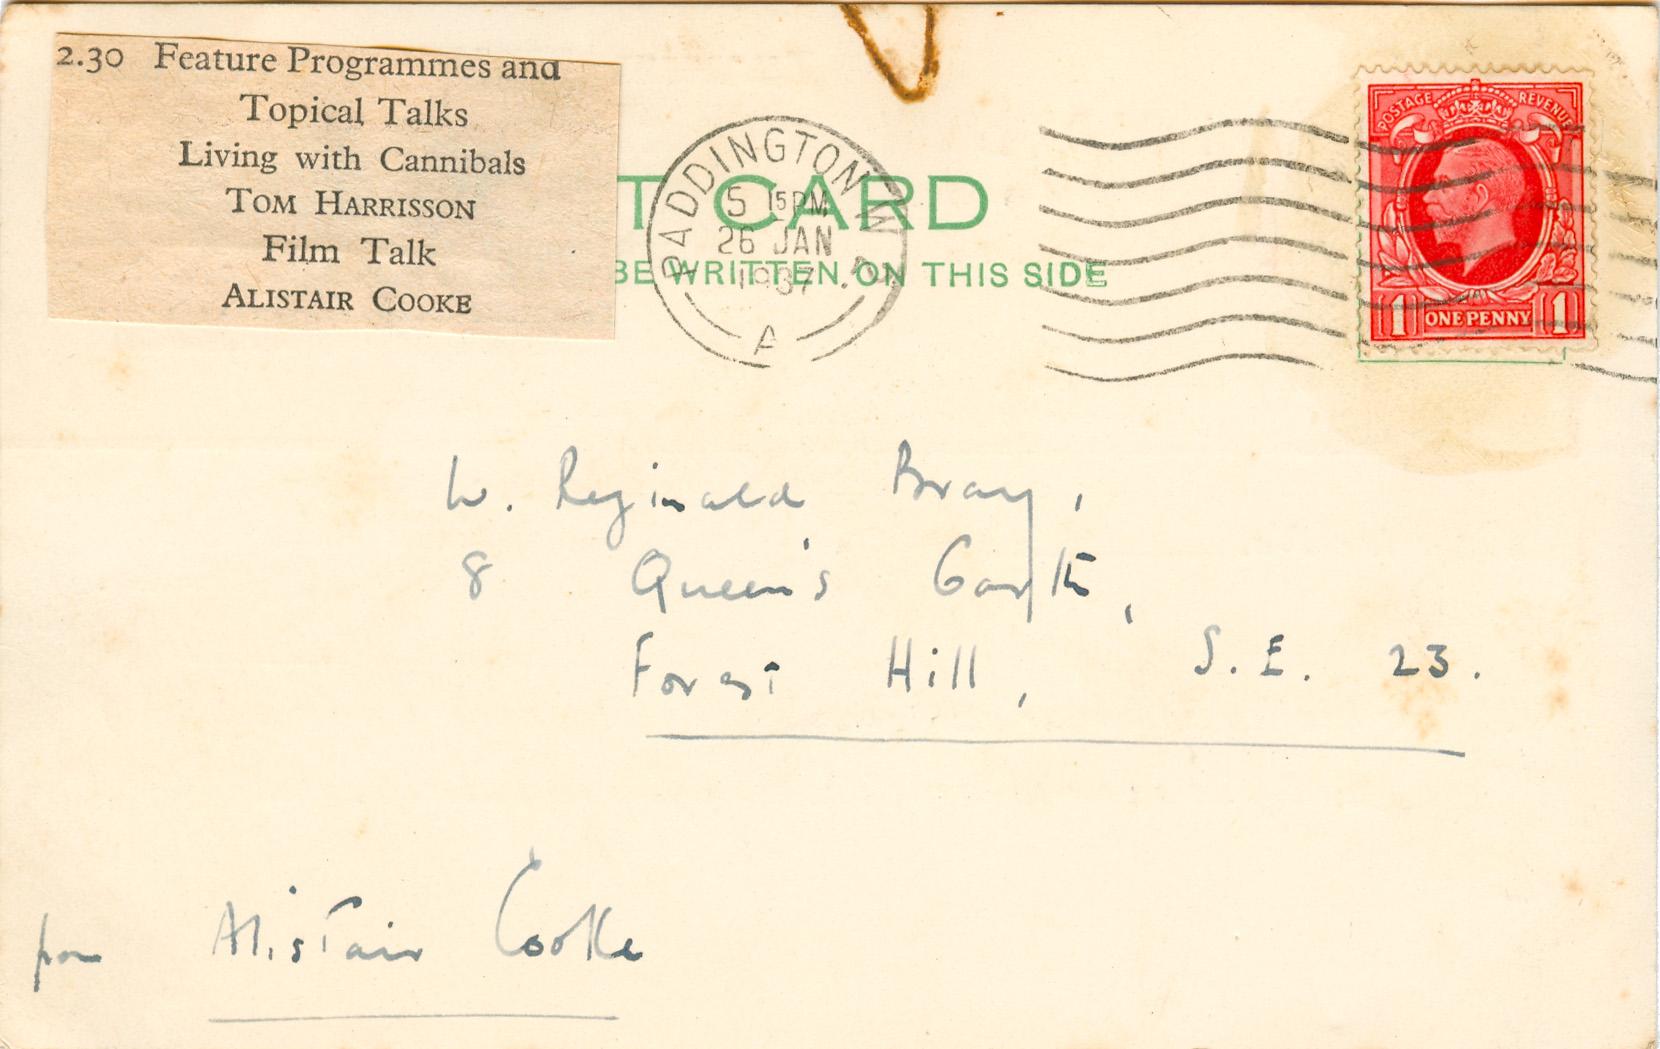 2.30 Feature Programmes and
Topical Talks
Living with Cannibals
TOM HARRISSON
Film Talk
ALISTAIR COOKE
T CARD
BE WRITTEN ON THIS SIDE
PADDINGTON W.2
5 15PM
26 JAN
1937
A
POSTAGE REVENUE
1 ONE PENNY 1
W. Reginald Bray,
8 Queen's Garth,
Forest Hill, S.E. 23.
from Alistair Cooke